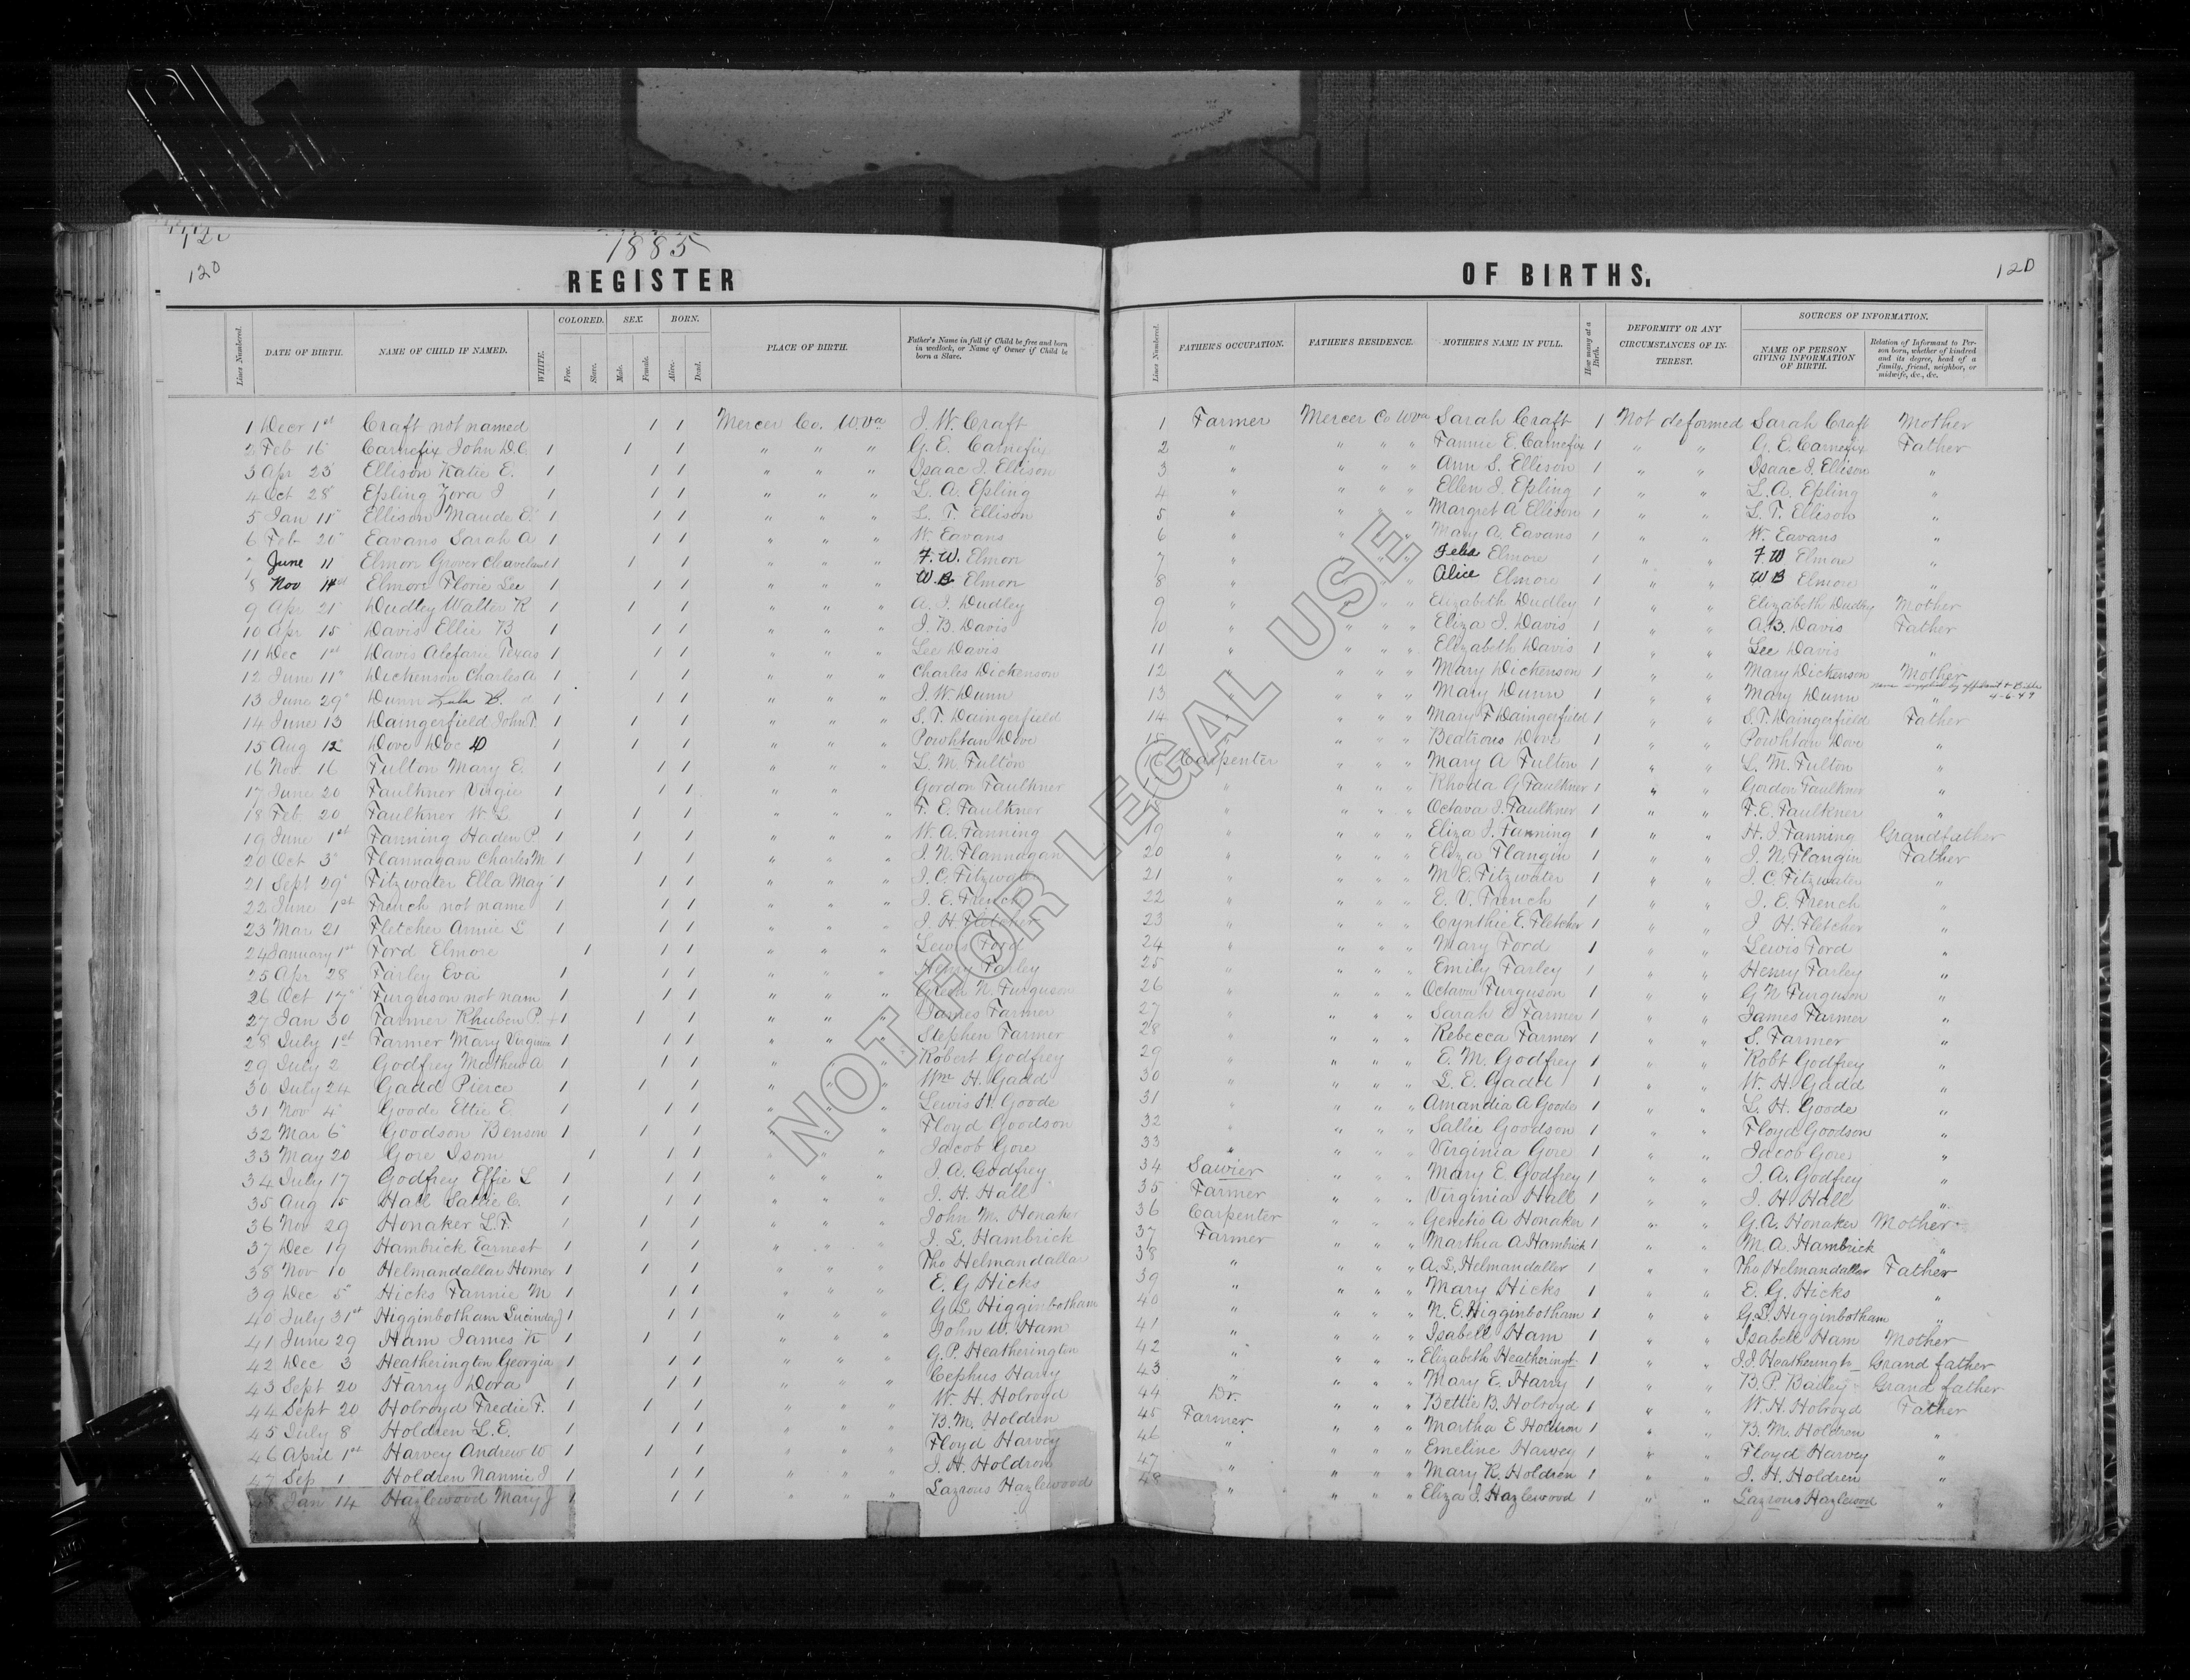 120
120
1885
REGISTER
OF BIRTHS.
120
Lines Numbered. DATE OF BIRTH. NAME OF CHILD IF NAMED. WHITE. COLORED. Free. Slave. SEX. Male. Female. BORN. Alive. Dead. PLACE OF BIRTH. Father's Name in full if Child be free and born in wedlock, or Name of Owner if Child be born a Slave.
Lines Numbered. FATHER'S OCCUPATION. FATHER'S RESIDENCE. MOTHER'S NAME IN FULL. How many at a Birth. DEFORMITY OR ANY CIRCUMSTANCES OF INTEREST. SOURCES OF INFORMATION. NAME OF PERSON GIVING INFORMATION OF BIRTH. Relation of Informant to Person born, whether of kindred and its degree, head of a family, friend, neighbor, or midwife, &c., &c.
1 Decr 1st Craft not named 1 1 Mercer Co. W.Va J. W. Craft 1 Farmer Mercer Co W Va Sarah Craft 1 Not deformed Sarah Craft Mother
2 Feb 16 Carnefix John D.C. 1 1 1 " " " G. E. Carnefix 2 " " " " Fannie E. Carnefix 1 " " G. E. Carnefix Father
3 Apr 23 Ellison Katie E. 1 1 1 " " " Isaac J. Ellison 3 " " " " Ann S. Ellison 1 " " Isaac J. Ellison "
4 Oct 28 Epling Zora J 1 1 1 " " " L. A. Epling 4 " " " " Ellen J. Epling 1 " " L. A. Epling "
5 Jan 11 Ellison Maude E. 1 1 1 " " " L. T. Ellison 5 " " " " Margret A Ellison 1 " " L. T. Ellison "
6 Feb 20 Eavans Sarah A 1 1 1 " " " W. Eavans 6 " " " " Mary A. Eavans 1 " " W. Eavans "
7 June 11 Elmore Grover Cleaveland 1 1 1 " " " F. W. Elmore 7 " " " " Elmore 1 " " F W Elmore "
8 Nov 14 Elmore Florie Lee 1 1 1 " " " W. B Elmore 8 " " " " Alice Elmore 1 " " W B Elmore "
9 Apr 21 Dudley Walter K 1 1 1 " " " A. J. Dudley 9 " " " " Elizabeth Dudley 1 " " Elizabeth Dudley Mother
10 Apr 15 Davis Ellie B 1 1 1 " " " J. B. Davis 10 " " " " Eliza J. Davis 1 " " A. B. Davis Father
11 Dec 1st Davis Texas 1 1 1 " " " Lee Davis 11 " " " " Elizabeth Davis 1 " " Lee Davis "
12 June 11 Dickenson Charles A 1 1 1 " " " Charles Dickenson 12 " " " " Mary Dickenson 1 " " Mary Dickenson Mother
13 June 29 Dunn Lula B. 1 1 1 " " " J. W. Dunn 13 " " " " Mary Dunn 1 " " Mary Dunn " name supplied by affidavit & Bible 4-6-49
14 June 13 Daingerfield John T 1 1 1 " " " S. T. Daingerfield 14 " " " " Mary F Daingerfield 1 " " S. T. Daingerfield Father
15 Aug 12 Dove Doc D 1 1 1 " " " Powhtan Dove 15 " " " " Beatrous Dove 1 " " Powhtan Dove "
16 Nov 16 Fulton Mary E. 1 1 1 " " " L. M. Fulton 16 Carpenter " " " Mary A Fulton 1 " " L. M. Fulton "
17 June 20 Faulkner Virgie 1 1 1 " " Gordon Faulkner " " " " Rhoda G Faulkner 1 " " Gordon Faulkner "
18 Feb 20 Faulkner W L. 1 1 1 " " " F. E. Faulkner " " " " Octava J. Faulkner 1 " " F. E. Faulkner "
19 June 1st Fanning Haden P. 1 1 1 " " " W. A. Fanning 19 " " " " Eliza J. Fanning 1 " " H. J Fanning Grandfather
20 Oct 3 Flannagan Charles M. 1 1 1 " " " J. N. Flannagan 20 " " " " Eliza Flangin 1 " " J. N. Flangin Father
21 Sept 29 Fitzwater Ella May 1 1 1 " " " J. C. Fitzwater 21 " " " " M E. Fitzwater 1 " " J. C. Fitzwater "
22 June 1st French not name 1 1 1 " " " J. E. French 22 " " " " E. V. French 1 " " J. E. French "
23 Mar 21 Fletcher Annie L 1 1 1 " " " J. H Fletcher 23 " " " " Cynthie E. Fletcher 1 " " J. H. Fletcher "
24 January 1st Ford Elmore 1 1 1 " " " Lewis Ford 24 " " " " Mary Ford 1 " " Lewis Ford "
25 Apr 28 Farley Eva 1 1 1 " " " Henry Farley 25 " " " " Emily Farley 1 " " Henry Farley "
26 Oct 17 Furguson not nam 1 1 1 " " " N. Furguson 26 " " " " Octava Furguson 1 " " G N Furguson "
27 Jan 30 Farmer Rhuben P. 1 1 1 " " " James Farmer 27 " " " " Sarah E Farmer 1 " " James Farmer "
28 July 1st Farmer Mary Virginia 1 1 1 " " " Stephen Farmer 28 " " " " Rebecca Farmer 1 " " S. Farmer "
29 July 2 Godfrey Matthew A 1 1 1 " " " Robert Godfrey 29 " " " " E. M. Godfrey 1 " " Robt Godfrey "
30 July 24 Gadd Pierce 1 1 1 " " " Wm H. Gadd 30 " " " " L. E. Gadd 1 " " W. H. Gadd "
31 Nov 4 Goode Ettie E. 1 1 1 " " " Lewis H. Goode 31 " " " " Amandia A Goode 1 " " L. H. Goode "
32 Mar 6 Goodson Benson 1 1 1 " " " Floyd Goodson 32 " " " " Sallie Goodson 1 " " Floyd Goodson "
33 May 20 Gore Isom 1 1 1 " " " Jacob Gore 33 " " " " Virginia Gore 1 " " Jacob Gore "
34 July 17 Godfrey Effie L 1 1 1 " " " J. A. Godfrey 34 Sawier " " " Mary E. Godfrey 1 " " J. A. Godfrey "
35 Aug 15 Hall Sallie C. 1 1 1 " " " J. H. Hall 35 Farmer " " " Virginia Hall 1 " " J. H. Hall "
36 Nov 29 Honaker L.F. 1 1 1 " " " John M. Honaker 36 Carpenter " " " Genetio A Honaker 1 " " G. A. Honaker Mother
37 Dec 19 Hambrick Earnest 1 1 1 " " " J. L. Hambrick 37 Farmer " " " Marthea A Hambrick 1 " " M. A. Hambrick "
38 Nov 10 Helmandallar Homer 1 1 1 " " " Tho Helmandallar 38 " " " " A. L. Helmandaller 1 " " Tho Helmandaller Father
39 Dec 5 Hicks Fannie M 1 1 1 " " " E. G Hicks 39 " " " " Mary Hicks 1 " " E. G. Hicks "
40 July 31st Higginbotham Lucinda J 1 1 1 " " " G L Higginbotham 40 " " " " N. E. Higginbotham 1 " " G. L. Higginbotham "
41 June 29 Ham James K 1 1 1 " " " John W. Ham 41 " " " " Isabell Ham 1 " " Isabell Ham Mother
42 Dec 3 Heatherington Georgia 1 1 1 " " " G. P. Heatherington 42 " " " " Elizabeth Heatheringt 1 " " J. J. Heatheringt Grand father
43 Sept 20 Harry Dora 1 1 1 " " " Cephus Harry 43 " " " " Mary E. Harry 1 " " B. P. Bailey Grand father
44 Sept 20 Holroyd Fredie F. 1 1 1 " " " W. H. Holroyd 44 Dr. " " " Bettie B. Holroyd 1 " " W. H. Holroyd Father
45 July 8 Holdren L. E. 1 1 1 " " " B. M. Holdren 45 Farmer " " " Martha E Holdren 1 " " B. M. Holdren "
46 April 1st Harvey Andrew W 1 1 1 " " " Floyd Harvey 46 " " " " Emeline Harvey 1 " " Floyd Harvey "
47 Sep 1 Holdren Nannie J 1 1 1 " " " J. H. Holdren 47 " " " " Mary K. Holdren 1 " " J. H. Holdren "
48 Jan 14 Hazlewood Mary J 1 1 1 " " " Lazrous Hazlewood 48 " " " " Eliza J. Hazlewood 1 " " Lazrous Hazlewood "
NOT FOR LEGAL USE